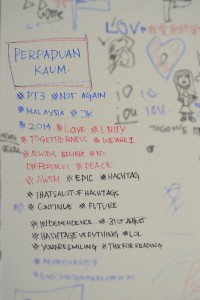 LOVE
PERPADUAN
KAUM:
#PT3 #NOT AGAIN
#MALAYSIA #JK
#2014 #LOVE #UNITY
#TOGETHERNESS #WEARE1
#ALWAYS BELIEVE #NO
DIFFERENCES #PEACE
#AWSM #EPIC #HASHTAG
THATSALOTOFHASHTAGS
#CONTINUE #FUTURE
#INDEPENDENCE #31STAUGUST
#HASHTAGEVERYTHING #LOL
#YOURESMILING #THXFORREADING
iou
iou